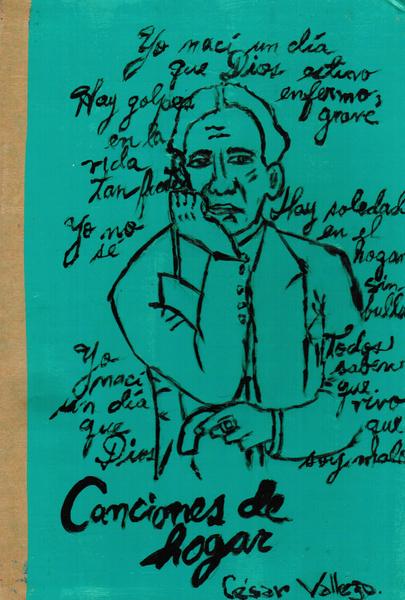 Yo nací un día
que Dios estuvo
enfermo,
grave
Hay golpes
en la
vida
tan fuertes
Yo no
sé
Hay soledad
en el
hogar
sin
bulla
Todos
saben
que
vivo
que
soy malo
Yo
nací
un día
que
Dios
Canciones de
hogar
César Vallejo.